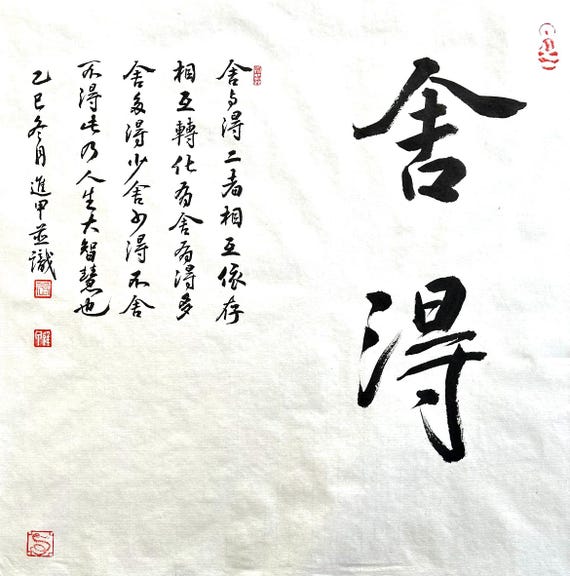 舍得
舍与得二者相互依存
相互轉化有舍有得多
舍多得少舍少得不舍
不得此乃人生大智慧也
乙巳冬月進甲並識